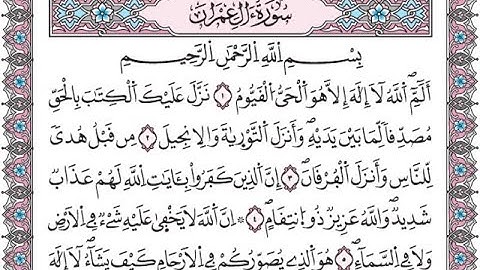 سُورَةُ ءَالِ عِمْرَانَ
بِسْمِ اِللَّهِ اِلرَّحْمَٰنِ اِلرَّحِيمِ
أَلَٓمِّٓ اَللَّهُ لَآ إِلَٰهَ إِلَّا هُوَ اَلْحَيُّ اُلْقَيُّومُ ١ نَزَّلَ عَلَيْكَ اَلْكِتَٰبَ بِالْحَقِّ
مُصَدِّقاً لِّمَا بَيْنَ يَدَيْهِ وَأَنزَلَ اَلتَّوْرَىٰةَ وَالِانجِيلَ ٢ مِن قَبْلُ هُدىً
لِّلنَّاسِ وَأَنزَلَ اَلْفُرْقَانَ ٣ إِنَّ اَلذِينَ كَفَرُواْ بِـَٔايَٰتِ اِللَّهِ لَهُمْ عَذَابٌ
شَدِيدٌ وَاللَّهُ عَزِيزٌ ذُو اُنتِقَامٍ ٤ اِنَّ اَللَّهَ لَا يَخْفَىٰ عَلَيْهِ شَےْءٌ فِے اِلَارْضِ
وَلَا فِے اِلسَّمَآءِ ٥ هُوَ اَلذِے يُصَوِّرُكُمْ فِے اِلَارْحَامِ كَيْفَ يَشَآءُ لَآ إِلَٰهَ